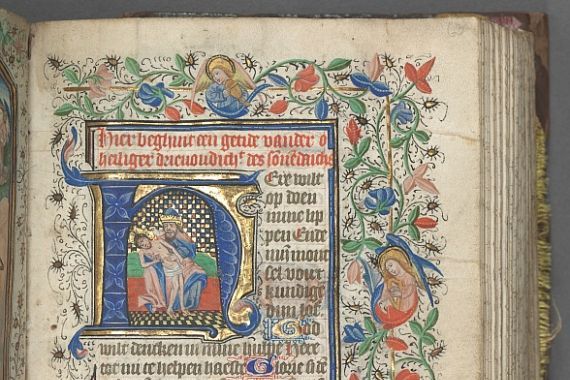 Hier beghint een getide vander
heiliger drievoudich des sonēdaichs
HEre wilt
op doen
mine lip
pen Ende
min mont
sel voirt
kundigē
dijn lof.
God
wilt dencken in mine hulp Here
tot mi te helpen haeste Glorie si dē